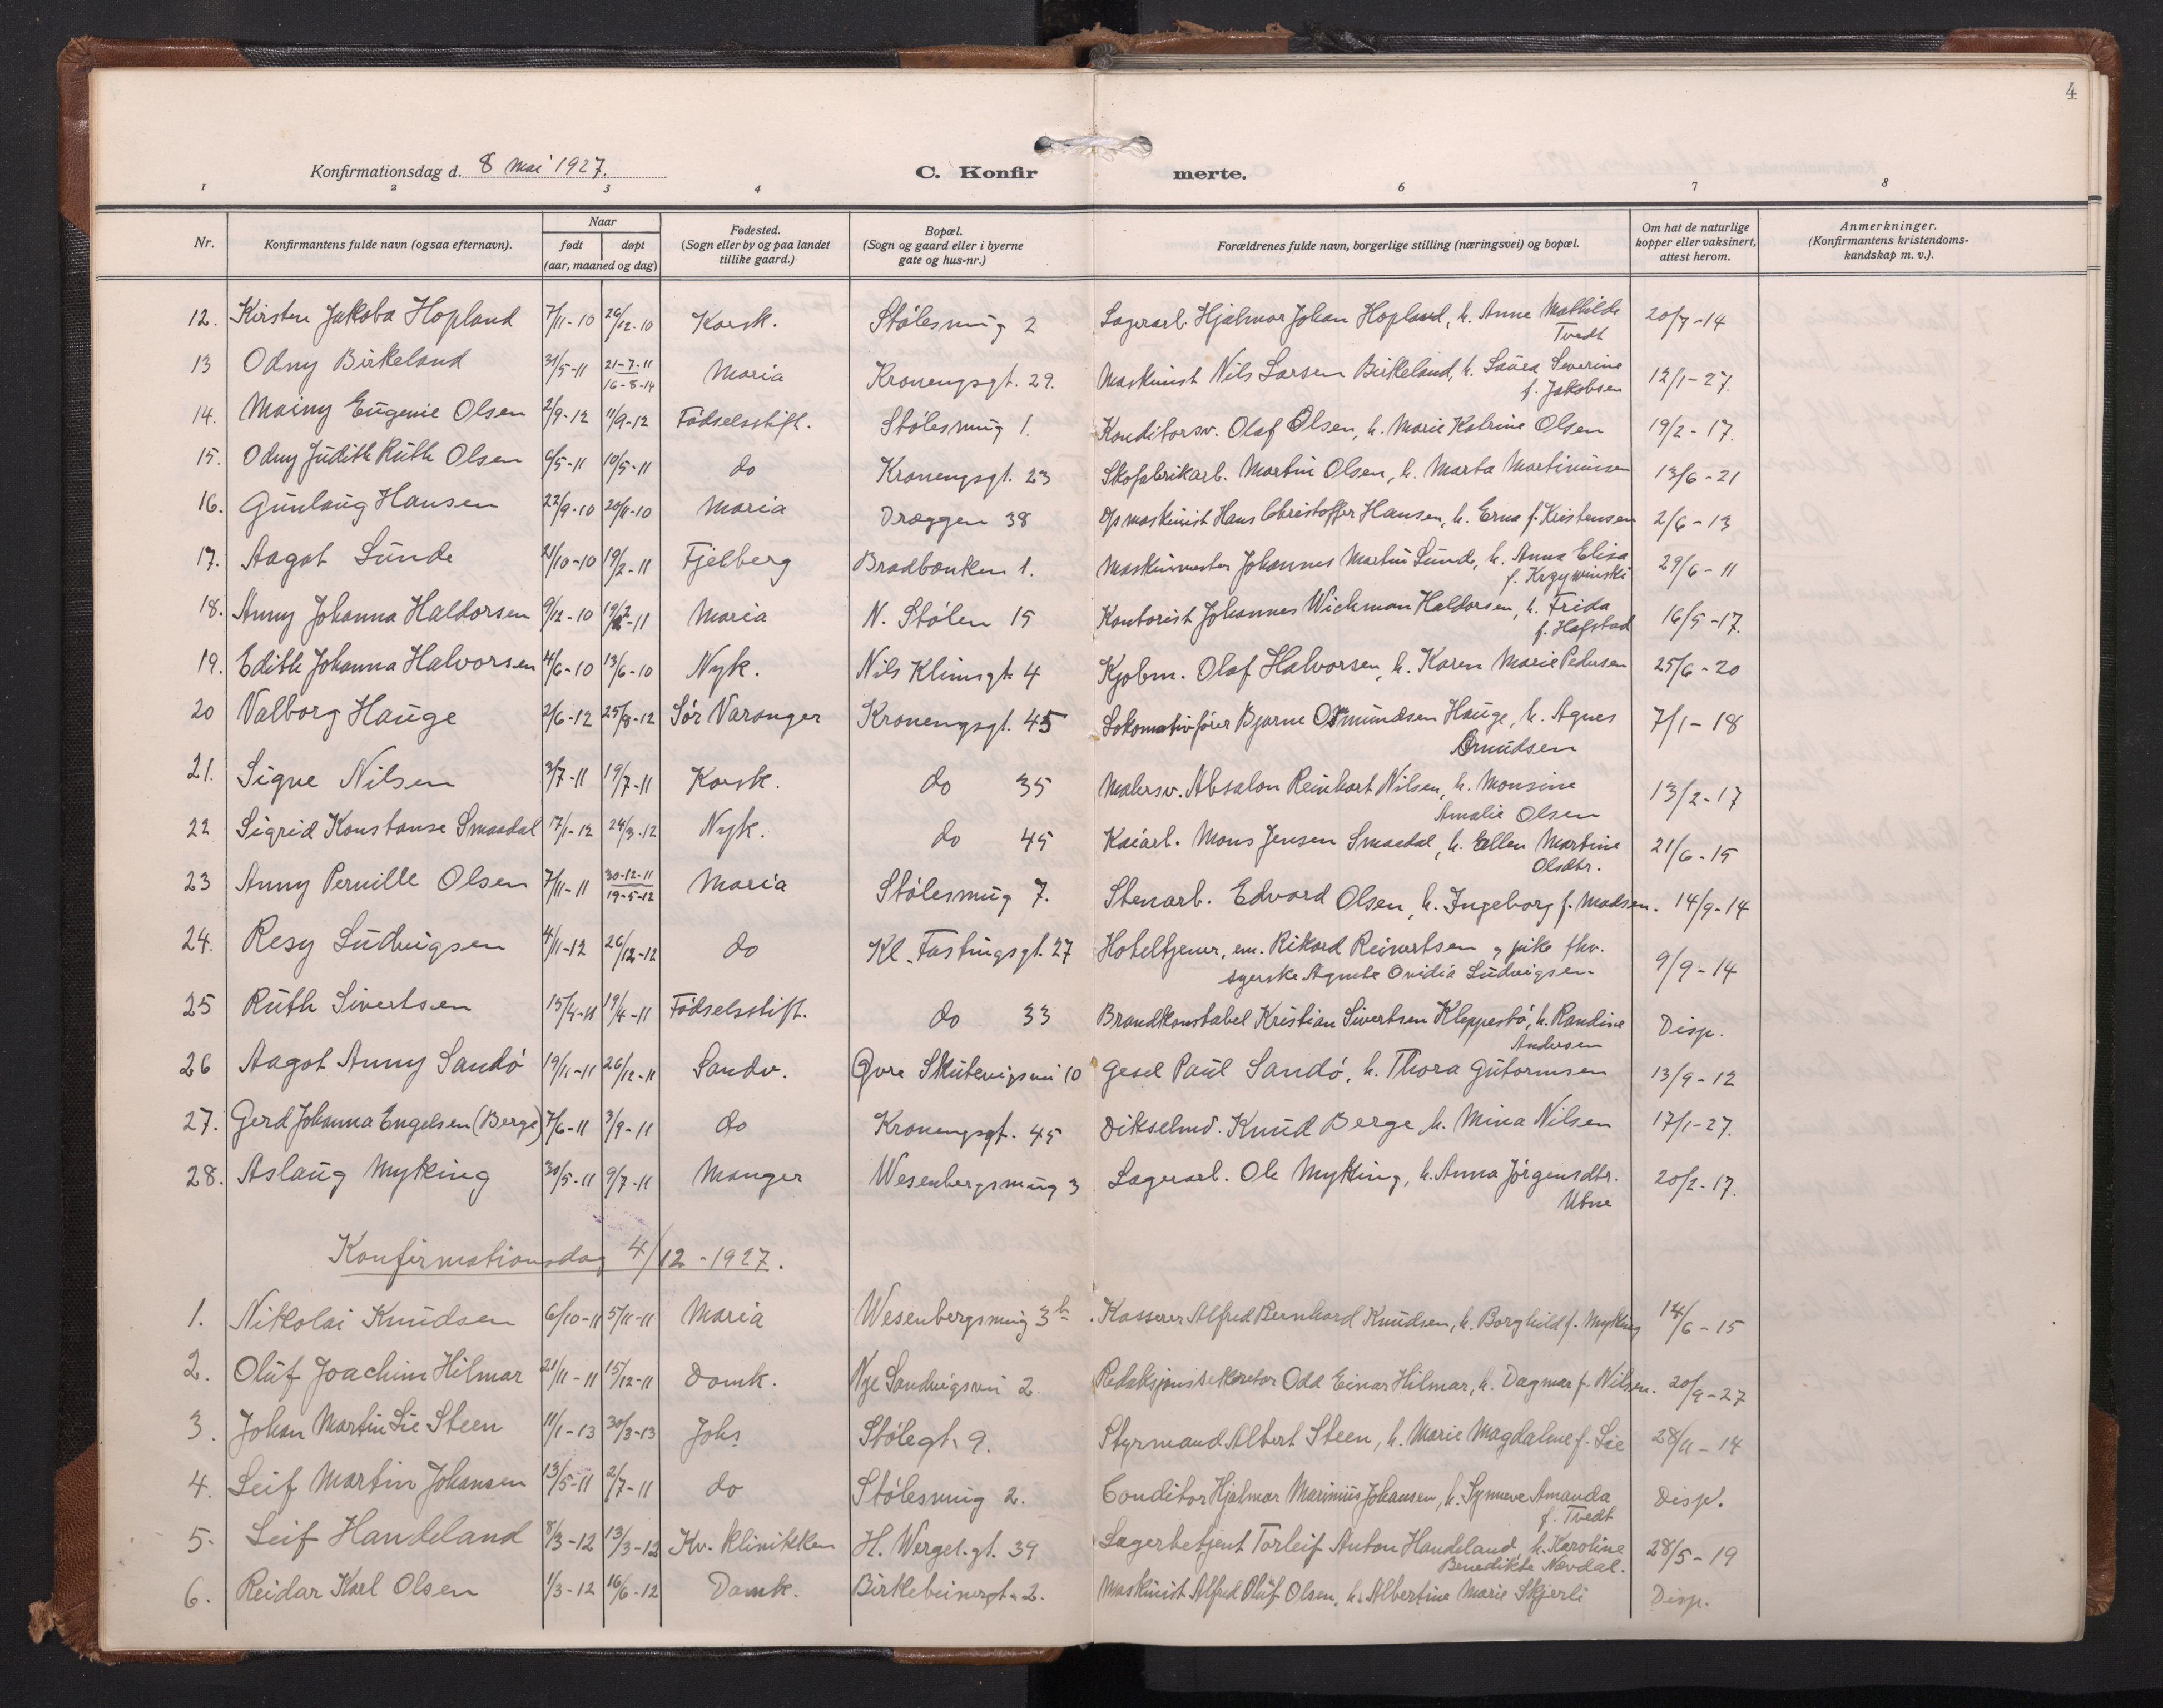 4
Konfirmationsdag d. 8 mai 1927.
C. Konfir merte.
1 2 3 4 6 7 8
Nr. Konfirmantens fulde navn (ogsaa efternavn). Naar født døpt (aar, maaned og dag) Fødested. (Sogn eller by og paa landet tillike gaard.) Bopæl. (Sogn og gaard eller i byerne gate og hus-nr.) Forældrenes fulde navn, borgerlige stilling (næringsvei) og bopæl. Om hat de naturlige kopper eller vaksinert, attest herom. Anmerkninger. (Konfirmantens kristendoms-kundskap m. v.).
12. Kirsten Jakoba Hopland 7/11-10 26/12-10 Korsk. Stølesmug 2 Lagerarb. Hjalmar Johan Hopland, h. Anne Mathilde 20/7-14
Tvedt
13 Odny Birkeland 31/5-11 21-7-11 16-8-14 Maria Kronengsgt. 29. Maskinist Nils Larsen Birkeland, h. Laura Severine 12/1-27.
f. Jakobsen
14. Mainy Eugenie Olsen 2/9-12 11/9-12 Fødselsstift. Stølesmug 1. Konditorsv. Olaf Olsen, h. Marie Katrine Olsen 19/2-17.
15. Odny Judith Ruth Olsen 4/5-11 10/5-11 do Kronengsgt. 23 Skofabrikarb. Martin Olsen, h. Marta Martinussen 13/6-21
16. Gunlaug Hansen 22/9-10 20/11-10 Maria Dræggen 38 D/s maskinist Hans Christoffer Hansen, h. Erna f. Kristensen 2/6-13
17. Aagot Sunde 21/10-10 19/2-11 Fjelberg Bradbænken 1. Maskinmester Johannes Martin Sunde, h. Anna Elisa 29/6-11
f. Krzywinski
18. Anny Johanna Haldorsen 9/12-10 19/2-11 Maria N. Stølen 15 Kontorist Johannes Wichman Haldorsen, h. Frida 16/5-17.
f. Hafstad
19. Edith Johanna Halvorsen 4/6-10 13/6-10 Nyk. Nils Klimsgt. 4 Kjøbm. Olaf Halvorsen, h. Karen Marie Pedersen 25/6-20
20 Valborg Hauge 2/6-12 25/8-12 Sør Varanger Kronengsgt. 45 Lokomotivfører Bjarne Osmundsen Hauge, h. Agnes 7/1-18
Amundsen
21. Signe Nilsen 3/7-11 19/7-11 Korsk. do 35 Malersv. Absalon Reinhart Nilsen, h. Monsine 13/2-17
Amalie Olsen
22 Sigrid Konstanse Smaadal 17/1-12 24/3-12 Nyk. do 45 Kaiarb. Mons Jensen Smaadal, h. Ellen Martine 21/6-15
Olsdtr.
23 Anny Pernille Olsen 7/11-11 30-12-11 19-5-12 Maria Stølesmug 7. Stenarb. Edvard Olsen, h. Ingeborg f. Madsen. 14/9-14
24. Resy Ludvigsen 4/11-12 26/12-12 do Kl. Fastingsgt. 27 Hoteltjener, em. Rikard Reinertsen og pike fhv. 9/9-14
syerske Agnete Ovidia Ludvigsen
25 Ruth Sivertsen 15/4-11 19/4-11 Fødselsstift. do 33 Brandkonstabel Kristian Sivertsen Kleppestø, h. Randine Disp.
Andersen
26 Aagot Anny Sandø 19/11-11 26/12-11 Sandv. Øvre Skutevigsvei 10 Gesel Paul Sandø, h. Thora Gutormsen 13/9-12
27. Gerd Johanna Engelsen (Berge) 7/6-11 3/9-11 do Kronengsgt. 45 Dikselmd. Knud Berge, h. Mina Nilsen 17/1-27.
28. Aslaug Myking 30/5-11 9/7-11 Manger Wesenbergsmug 3 Lagerarb. Ole Myking, h. Anna Jørgensdtr. 20/2-17.
Utne
Konfirmationsdag 4/12-1927.
1. Nikolai Knudsen 6/10-11 5/11-11 Maria Wesenbergsmug 3b Kasserer Alfred Bernhard Knudsen, h. Borghild f. Myking 14/6-15
2. Oluf Joachim Hilmar 21/11-11 15/12-11 Domk. Nye Sandvigsvei 2 Redaksjonssekretær Odd Einar Hilmar, h. Dagmar f. Nilsen. 20/9-27
3. Johan Martin Lie Steen 11/1-13 30/3-13 Johs Stølegt. 9. Styrmand Albert Steen, h. Marie Magdalene f. Lie 28/11-14
4. Leif Martin Johansen 13/5-11 2/7-11 do Stølesmug 2. Conditor Hjalmar Marinius Johansen, h. Synneve Amanda Disp.
f. Tvedt
5. Leif Handeland 8/3-12 13/3-12 Kv. klinikken H. Wergel. gt. 39 Lagerbetjent Torleif Anton Handeland, h. Karoline 28/5-19
Benedikte Nævdal.
6. Reidar Karl Olsen 1/3-12 16/6-12 Domk. Birkebeinergt. 2. Maskinist Alfred Oluf Olsen, h. Albertine Marie Skjerli Disp.